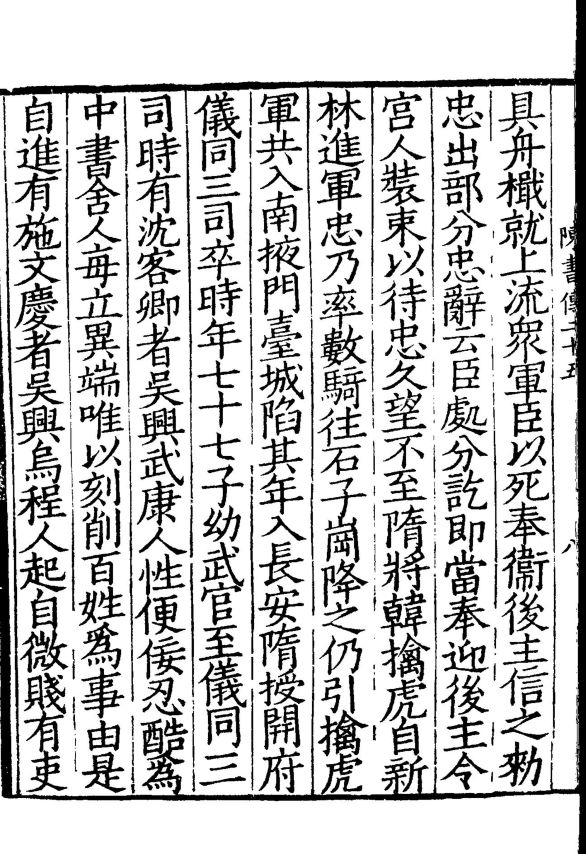 陳書傳二十五 八
具舟檝就上流衆軍臣以死奉衞後主信之勑
忠出部分忠辭云臣處分訖即當奉迎後主令
宮人裝束以待忠久望不至隋將韓擒虎自新
林進軍忠乃率數騎往石子崗降之仍引擒虎
軍共入南掖門臺城陷其年入長安隋授開府
儀同三司卒時年七十七子幼武官至儀同三
司時有沈客卿者吳興武康人性便佞忍酷爲
中書舍人每立異端唯以刻削百姓爲事由是
自進有施文慶者吳興烏程人起自微賤有吏